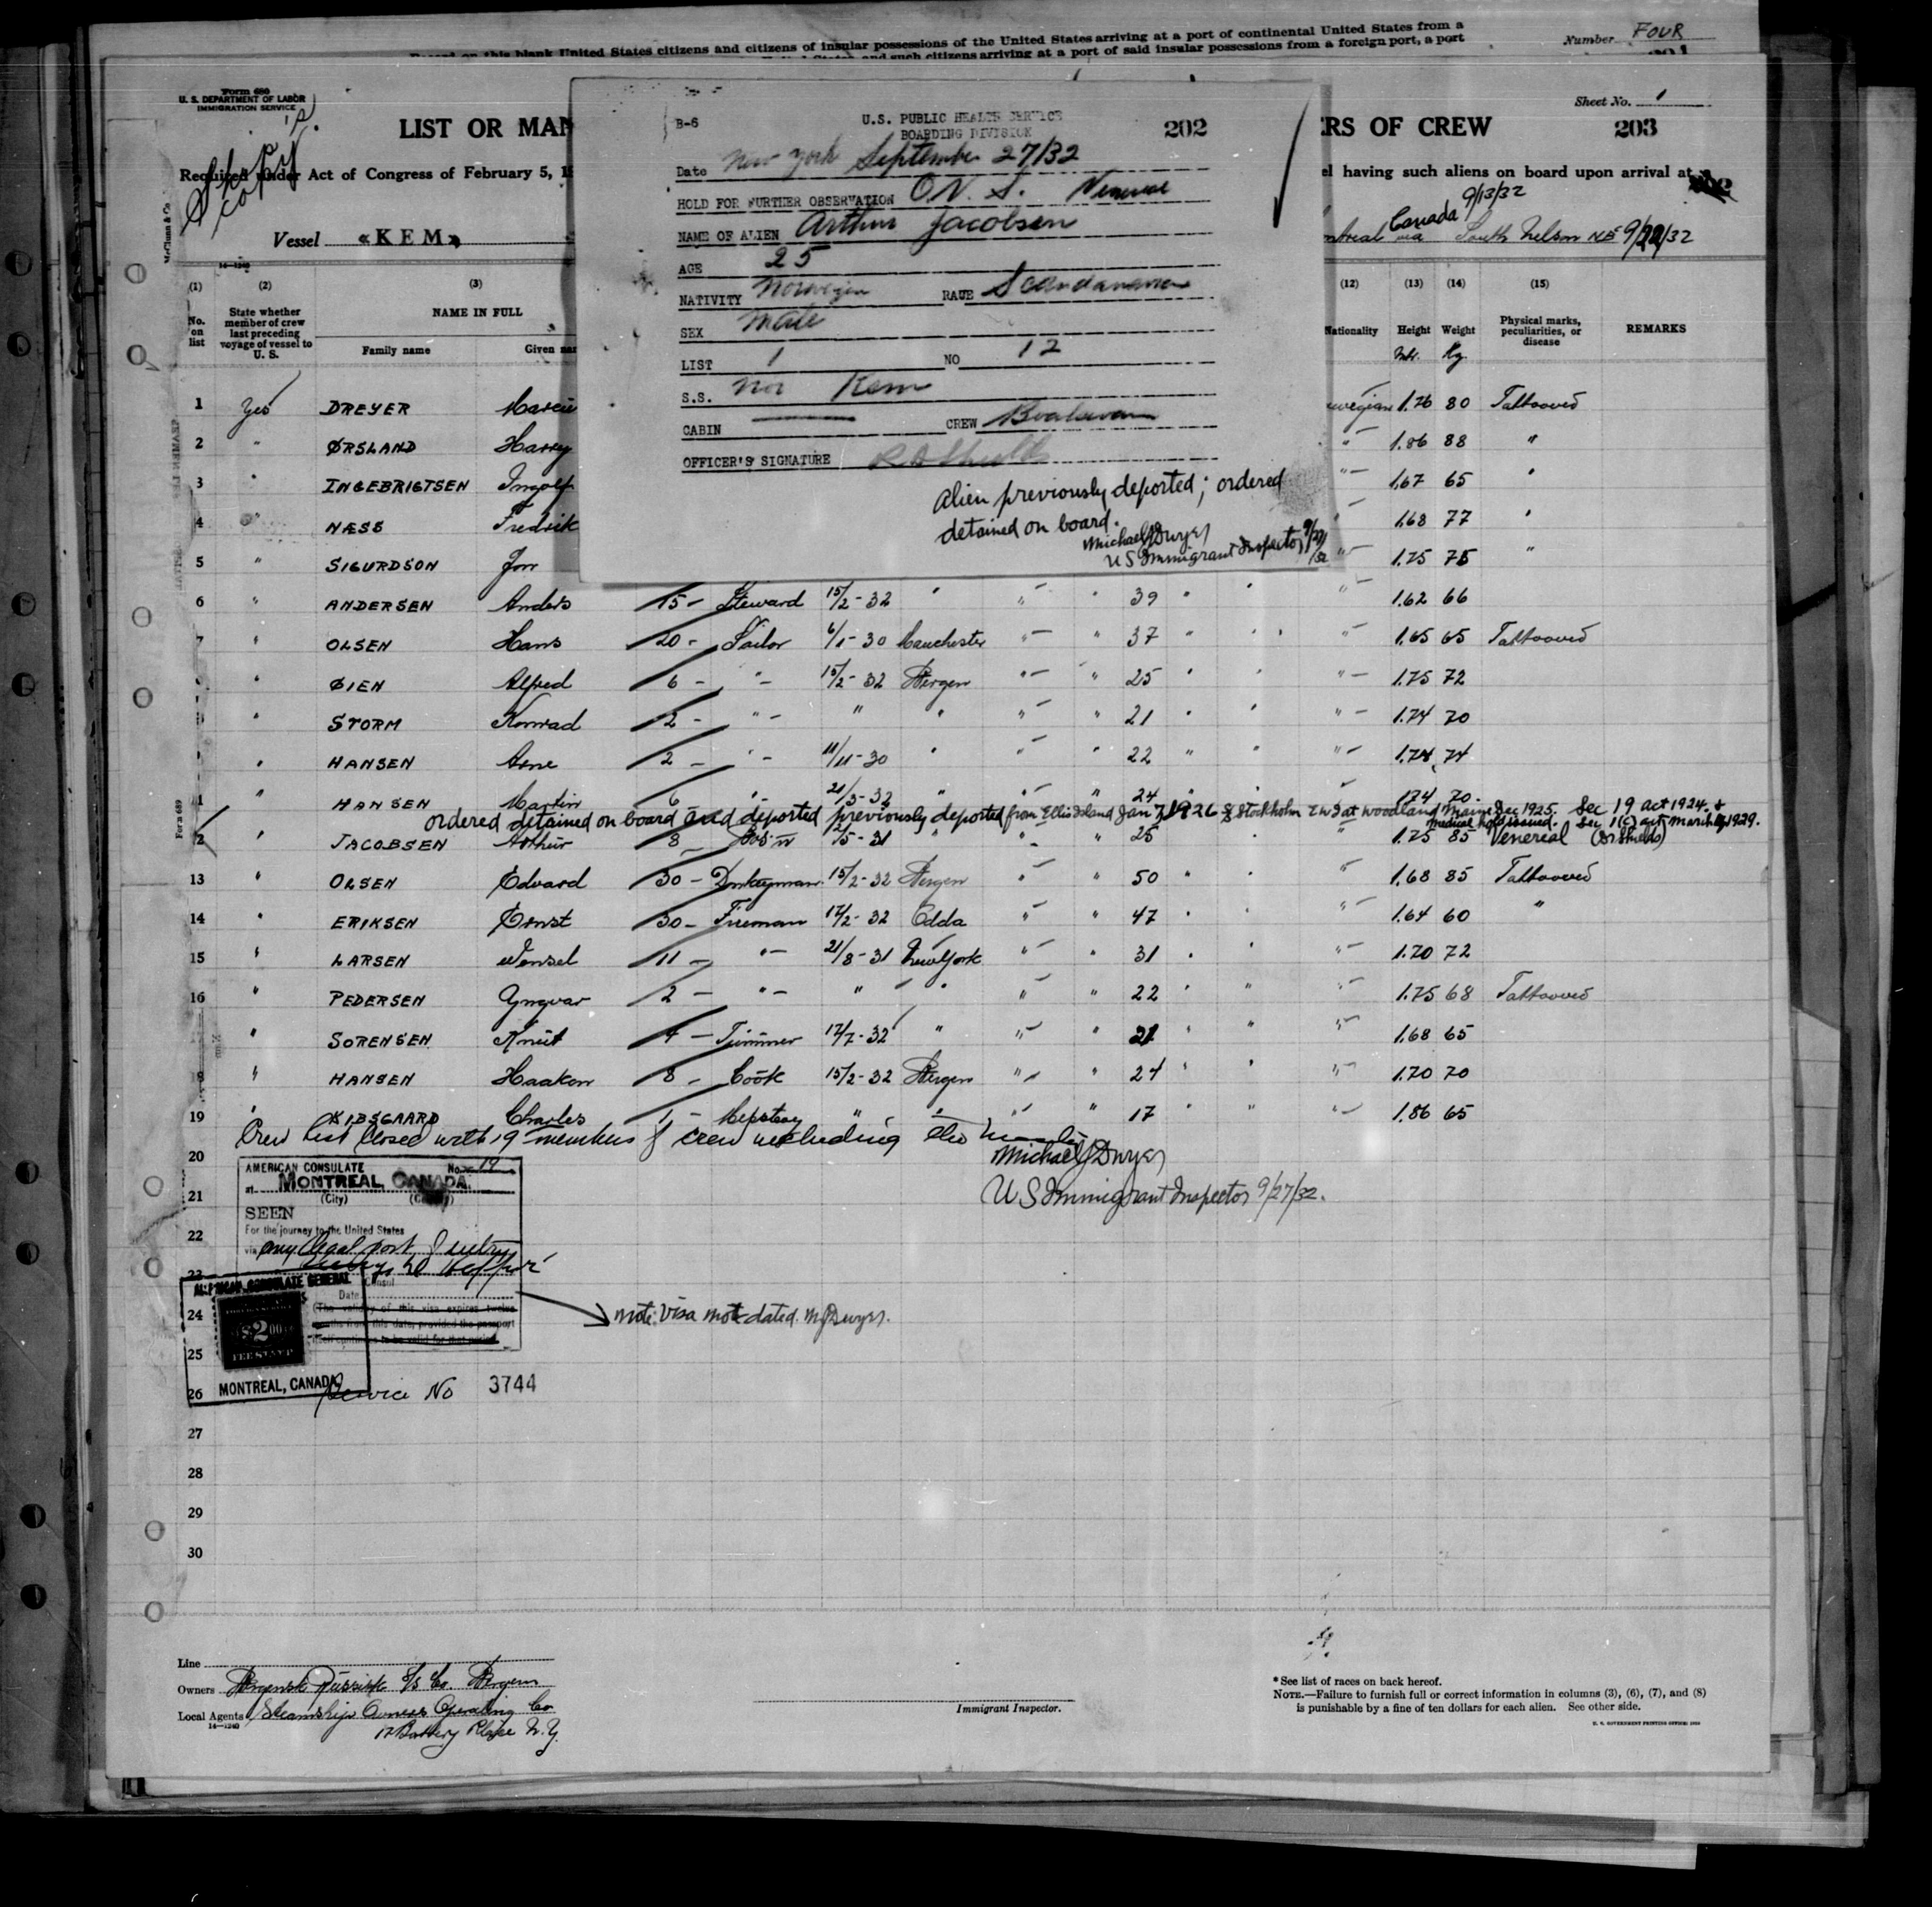 Number FOUR
Based on this blank United States citizens and citizens of insular possessions of the United States arriving at a port of continental United States from a
and such citizens arriving at a port of said insular possessions from a foreign port, a port
Form 680
U. S. DEPARTMENT OF LABOR
IMMIGRATION SERVICE
Ship's copy
Sheet No. 1
LIST OR MAN
ERS OF CREW
203
Required under Act of Congress of February 5, 1
el having such aliens on board upon arrival at
9/13/32
Vessel "KEM"
ntreal Canada via South Nelson NB 9/22/32
B-6
U.S. PUBLIC HEALTH SERVICE
BOARDING DIVISION
202
Date New York September 27/32
HOLD FOR FURTHER OBSERVATION O.V.S.
NAME OF ALIEN Arthur Jacobsen
AGE 25
NATIVITY Norwegian RACE Scandanavian
SEX Male
LIST 1 NO 12
S.S. Nor Kem
CABIN — CREW
OFFICER'S SIGNATURE
Alien previously deported; ordered
detained on board.
Michael J Dwyer
US Immigrant Inspector 9/27/32
(1) (2) (3) (12) (13) (14) (15)
No. on list
State whether member of crew last preceding voyage of vessel to U. S.
NAME IN FULL
Family name Given nam
Nationality Height Weight Physical marks, peculiarities, or disease REMARKS
Mtr. Kg.
1 Yes DREYER wegian 1.76 80 Tattooved
2 " ØRSLAND Harry " 1.86 88 "
3 " INGEBRIGTSEN Ingolf " 1.67 65 "
4 " NÆSS Fredrik " 1.68 77 "
5 " SIGURDSON Jon " 1.75 75 "
6 " ANDERSEN Anders 15 - Steward 15/2-32 " " " 39 " " " 1.62 66
7 " OLSEN Hans 20 - Sailor 6/1-30 Manchester " " 37 " " " 1.65 65 Tattooved
" ØIEN Alfred 6 - " 15/2-32 Bergen " " 25 " " " 1.75 72
" STORM Konrad 2 - " " " " " 21 " " " 1.74 70
" HANSEN Arne 2 - " 11/11-30 " " " 22 " " " 1.78 74
" HANSEN Martin 6 - " 21/3-32 " " " 24 " " " 1.74 70
ordered detained on board and deported previously deported from Ellis Island Jan 7, 1926 SS Stockholm EWI at Woodland Maine Dec 1925. Sec 19 act 1924 &
medical hold issued. Sec 1(c) act March 4, 1929.
" JACOBSEN Arthur 8 - Bos'n /5-31 " " " 25 " 1.75 85 Venereal (Dr Shields)
13 " OLSEN Edvard 30 - Donkeyman 15/2-32 Bergen " " 50 " " " 1.68 85 Tattooved
14 " ERIKSEN Ernst 30 - Fireman 17/2-32 Odda " " 47 " " " 1.64 60 "
15 " LARSEN Wensel 11 - " 21/8-31 New York " " 31 " " " 1.70 72
16 " PEDERSEN Yngvar 2 - " " " " " 22 " " " 1.75 68 Tattooved
" SORENSEN Knut 4 - Trimmer 17/7-32 " " " 21 " " " 1.68 65
" HANSEN Haakon 8 - Cook 15/2-32 Bergen " " 24 " " " 1.70 70
19 " KIBSGAARD Charles 1 - Messboy " " " " 17 " " " 1.86 65
Crew list closed with 19 members of crew including the master
20 Michael J Dwyer
21 US Immigrant Inspector 9/27/32.
AMERICAN CONSULATE No. 19
at MONTREAL, CANADA.
(City) (Country)
SEEN
For the journey to the United States
22 via any legal port of entry
23
Consul
Date
(The validity of this visa expires twelve
months from this date, provided the passport
itself continues to be valid for that period.)
AMERICAN CONSULATE GENERAL
$2.00
FEE STAMP
MONTREAL, CANADA
24 note: Visa not dated. MJDwyer.
25
26 Service No 3744
27
28
29
30
Line
Owners Bergenske S/S Co. Bergen
Local Agents Steamship Owners Operating Co
14—1240
17 Battery Place N.Y.
Immigrant Inspector.
* See list of races on back hereof.
NOTE.—Failure to furnish full or correct information in columns (3), (6), (7), and (8)
is punishable by a fine of ten dollars for each alien. See other side.
U. S. GOVERNMENT PRINTING OFFICE